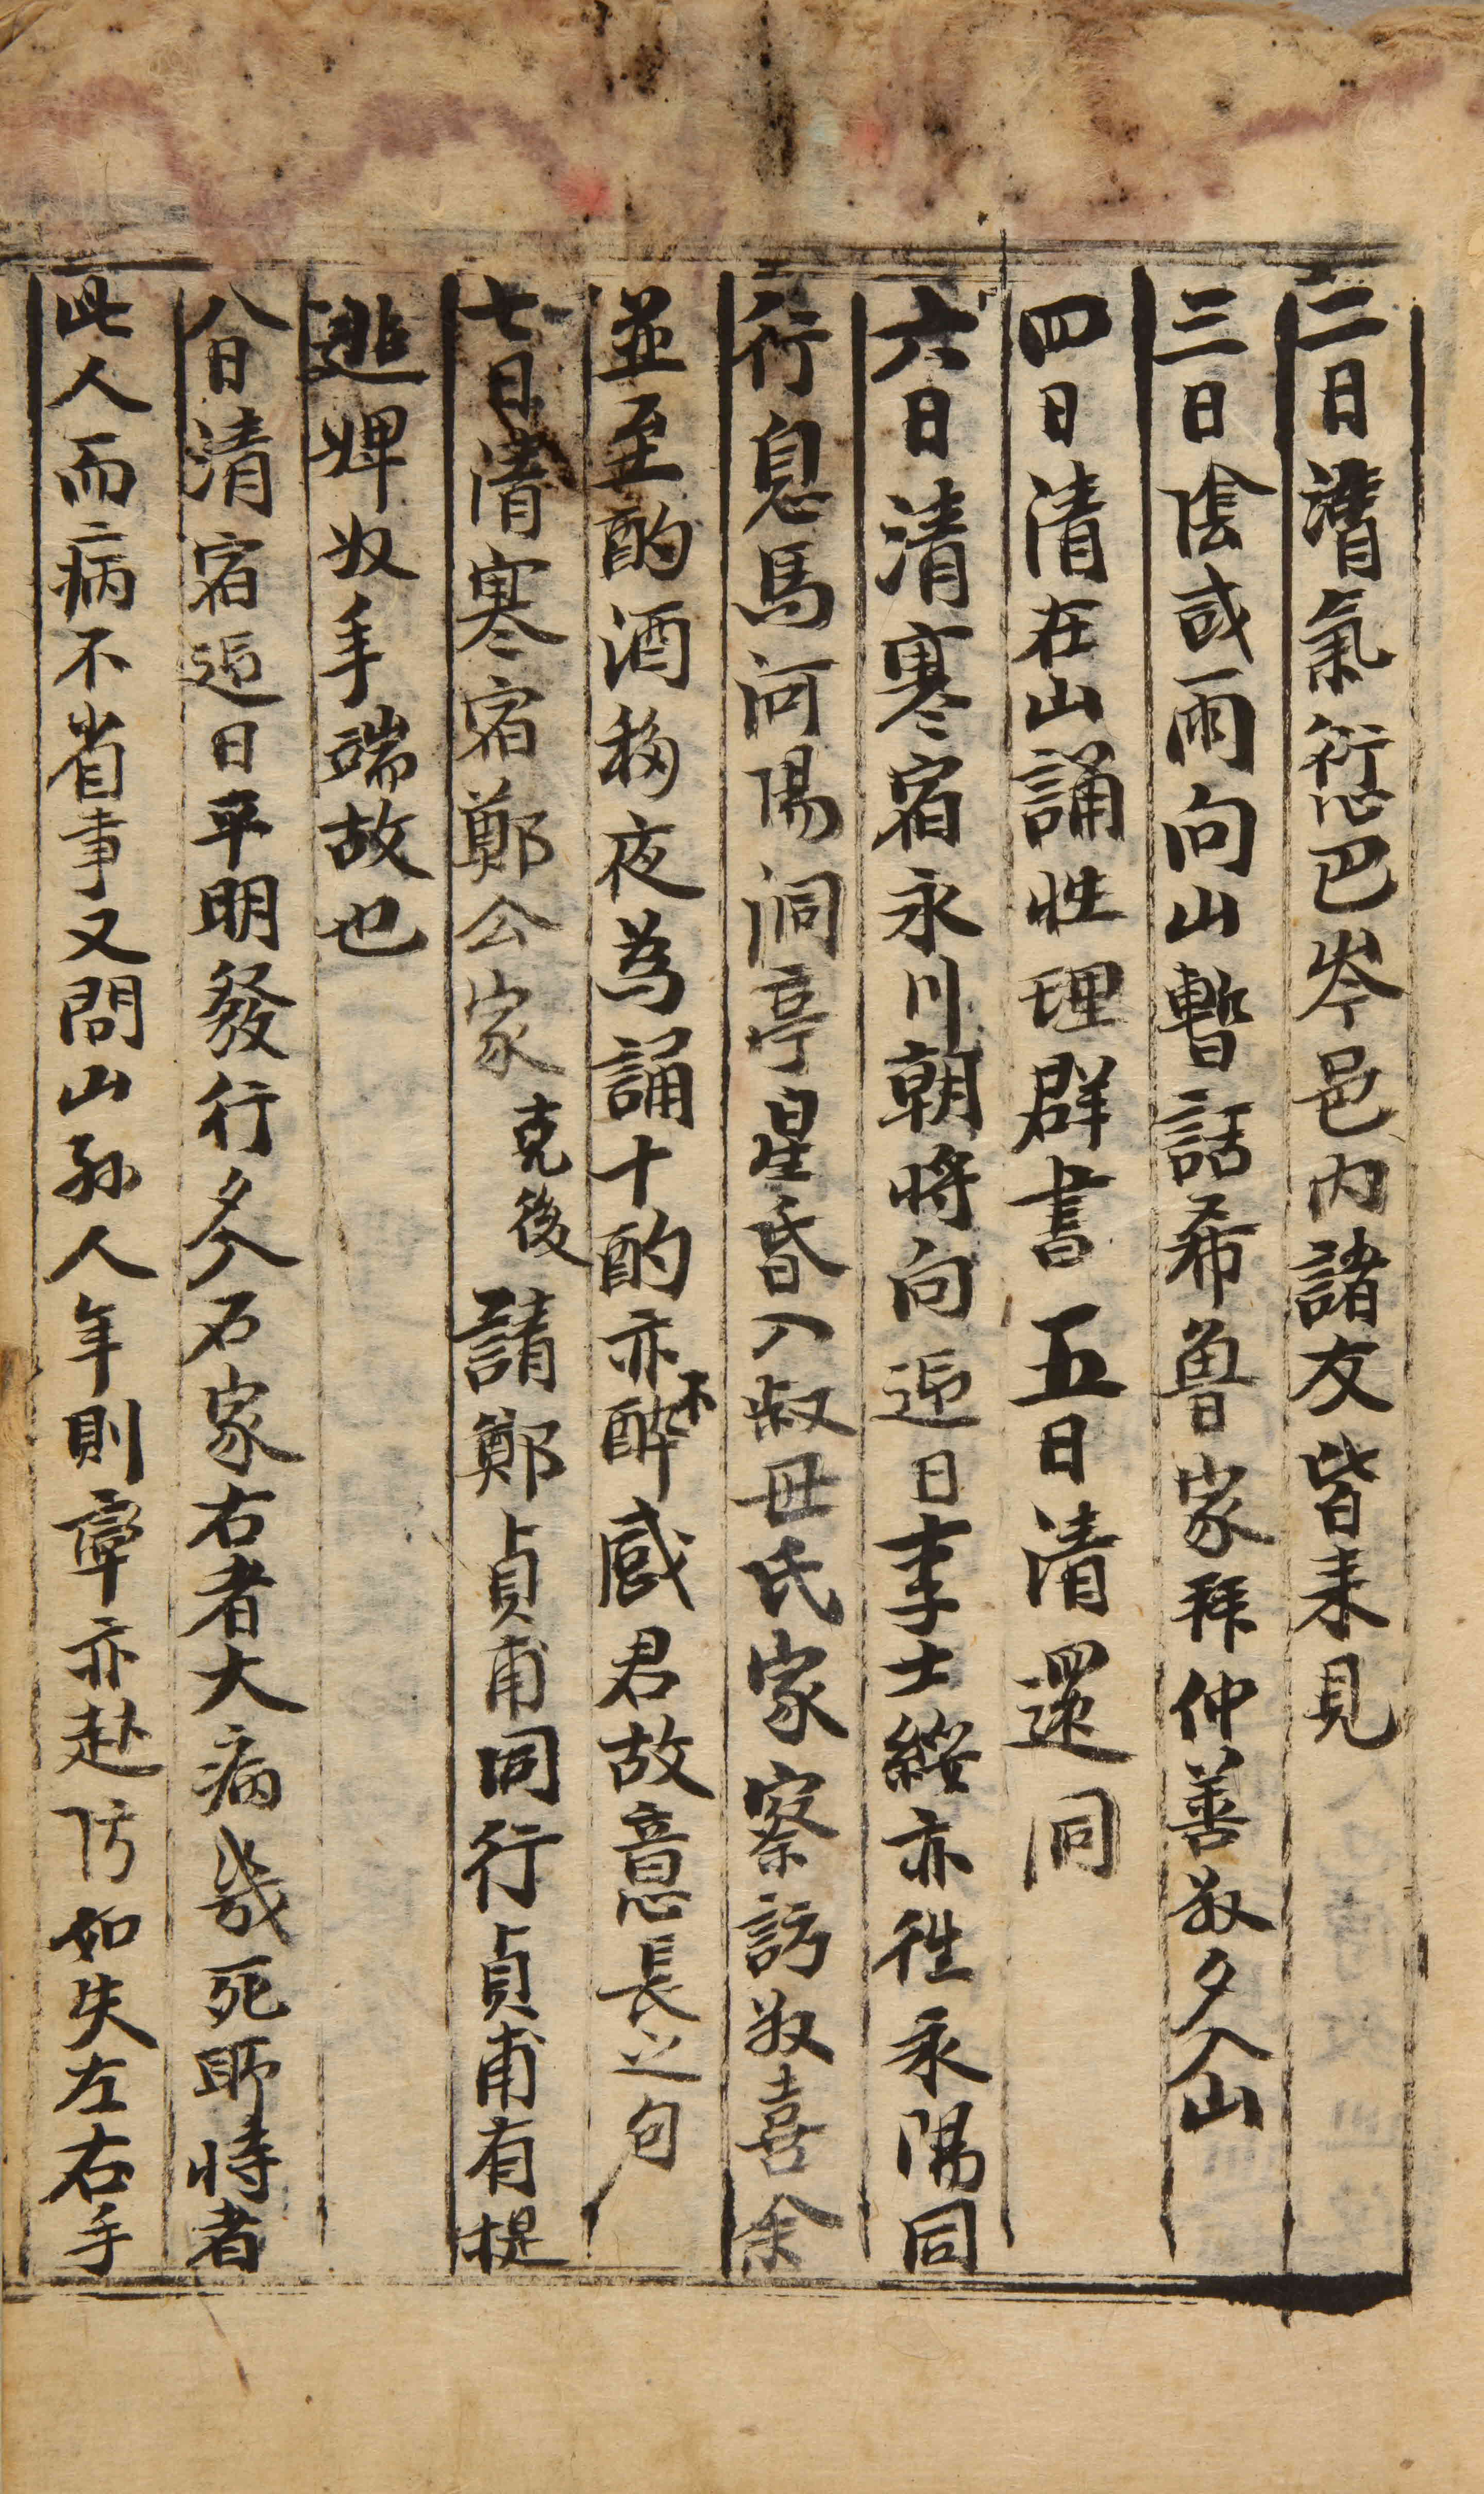 二日淸氣愆巴岑邑內諸友皆来見
三日陰或雨向山暫話希魯家拜仲善叔夕入山
四日淸在山誦性理群書 五日淸還洞
六日淸寒宿永川朝將向迎日李士綏亦徃永陽同
行息馬河陽洞亭星昏入叔母氏家察訪叔喜余
並至酌酒移夜爲誦十酌亦不醉感君故意長之句
七日淸寒宿鄭公家 克後 請鄭貞甫同行貞甫有提
逃婢奴手端故也
八日淸宿迎日平明發行夕入石家右者大病幾死聊恃者
此人而病不省事又問山孫人年則章亦赴防如失左右手